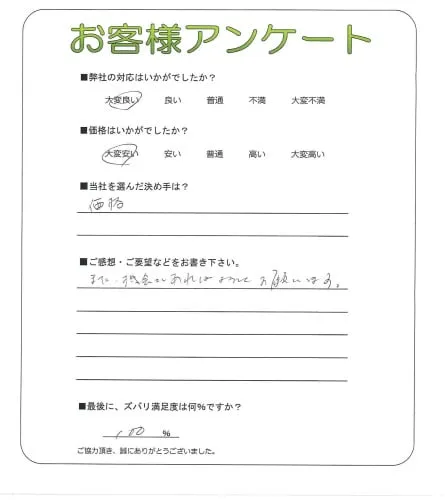 お客様アンケート
■弊社の対応はいかがでしたか?
大変良い 良い 普通 不満 大変不満
■価格はいかがでしたか?
大変安い 安い 普通 高い 大変高い
■当社を選んだ決め手は?
価格
■ご感想・ご要望などをお書き下さい。
また、機会があれば よろしく お願いします。
■最後に、ズバリ満足度は何%ですか?
100 %
ご協力頂き、誠にありがとうございました。